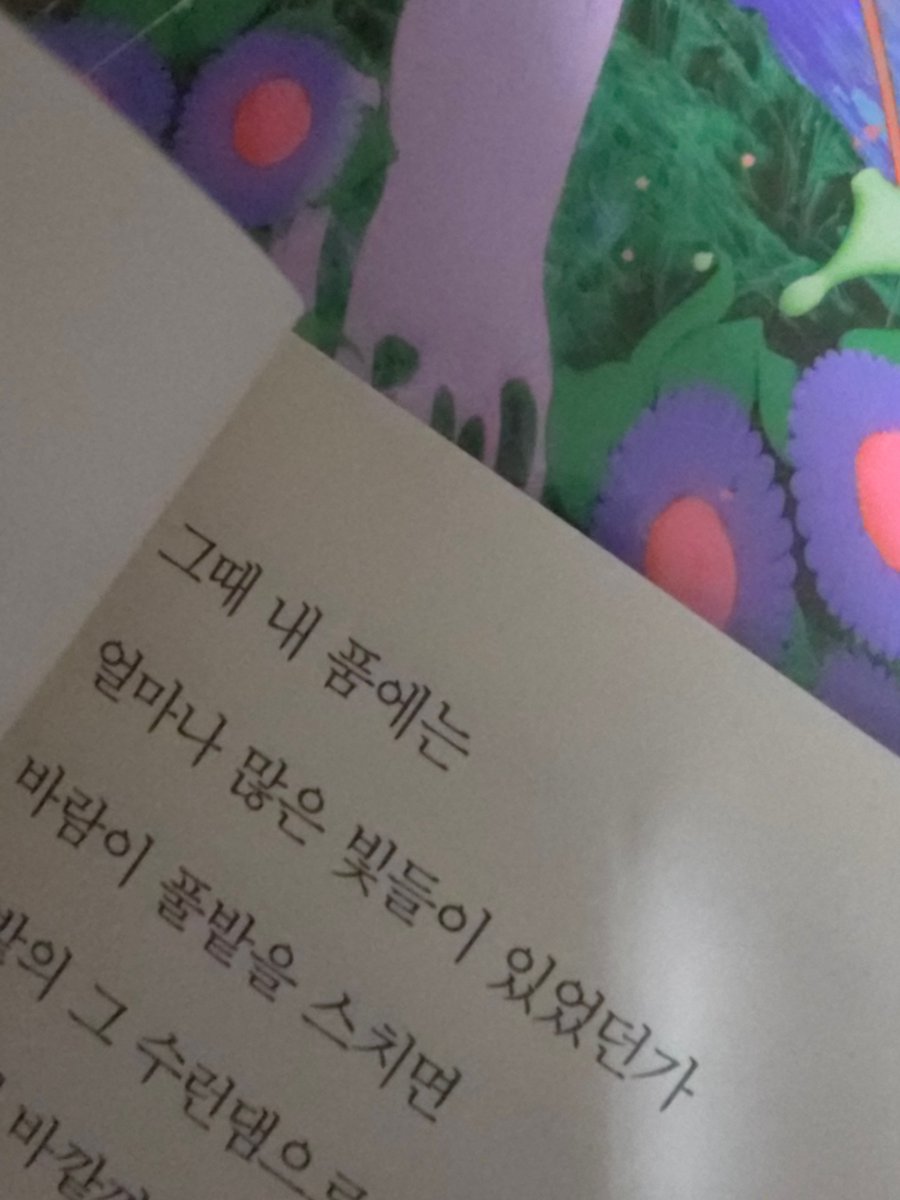 그때 내 품에는
얼마나 많은 빛들이 있었던가
바람이 풀밭을 스치면
그 수런댐으로
바깥까지